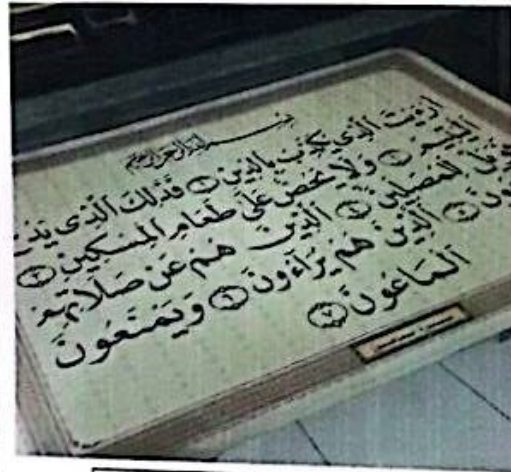 بسم الله الرحمن الرحيم
أَرَءَيْتَ الَّذِى يُكَذِّبُ بِالدِّينِ ١ فَذَٰلِكَ الَّذِى يَدُعُّ
الْيَتِيمَ ٢ وَلَا يَحُضُّ عَلَىٰ طَعَامِ الْمِسْكِينِ ٣
فَوَيْلٌ لِّلْمُصَلِّينَ ٤ الَّذِينَ هُمْ عَن صَلَاتِهِمْ
سَاهُونَ ٥ الَّذِينَ هُمْ يُرَآءُونَ ٦ وَيَمْنَعُونَ
الْمَاعُونَ ٧